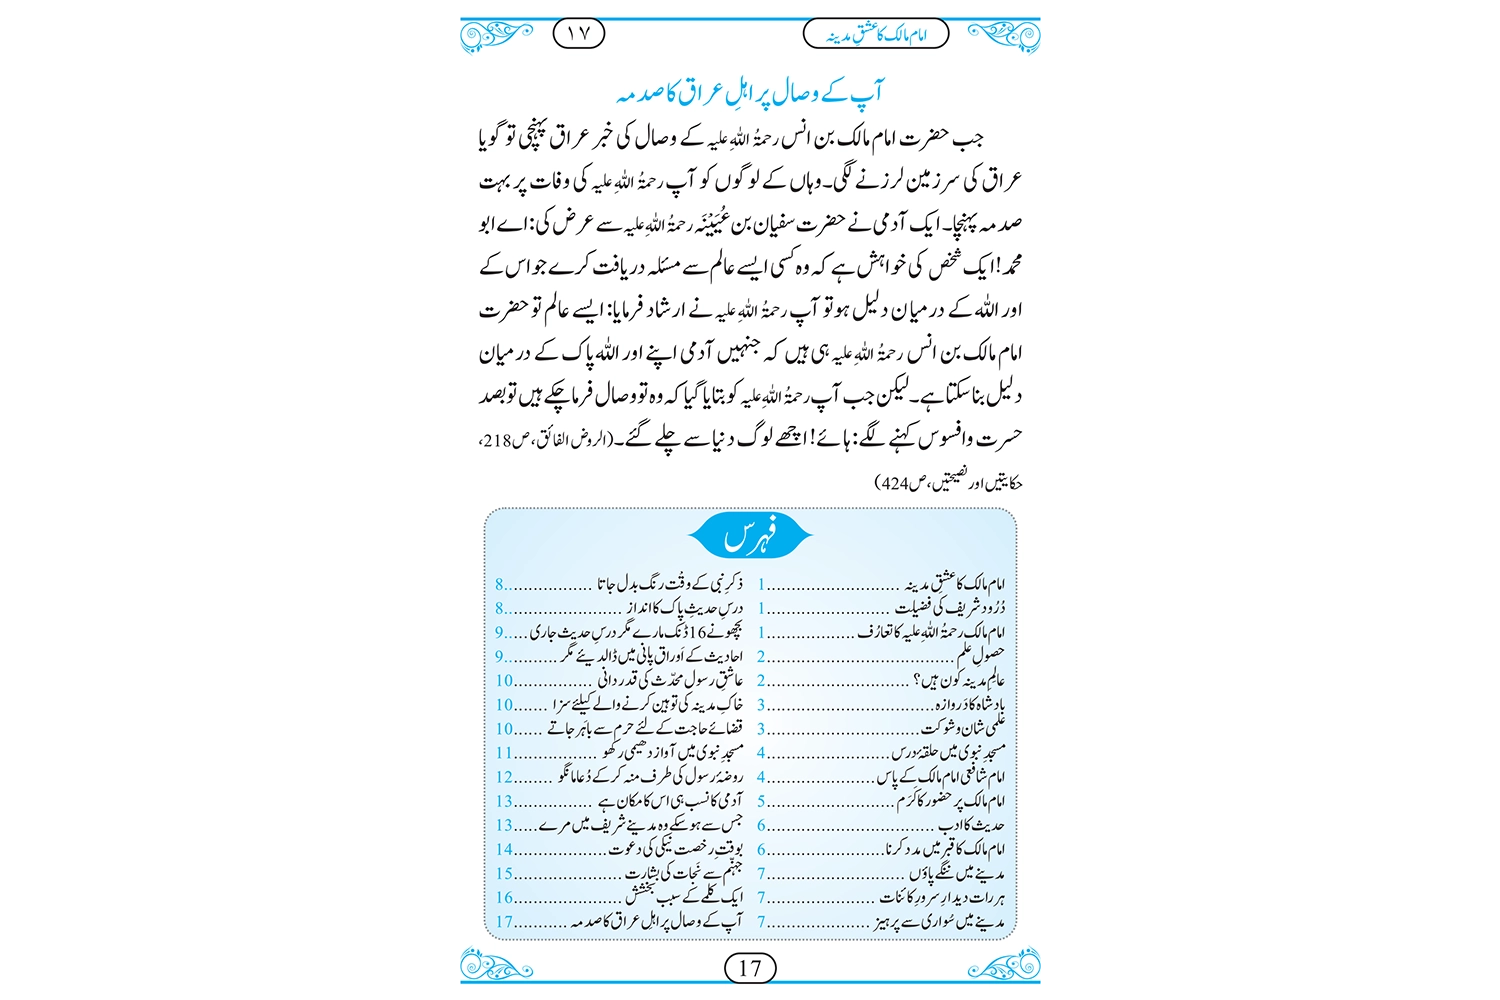 امام مالک کا عشقِ مدینہ
۱۷
آپ کے وصال پر اہلِ عراق کا صدمہ
جب حضرت امام مالک بن انس رحمۃُ اللہِ علیہ کے وصال کی خبر عراق پہنچی تو گویا
عراق کی سرزمین لرزنے لگی۔ وہاں کے لوگوں کو آپ رحمۃُ اللہِ علیہ کی وفات پر بہت
صدمہ پہنچا۔ ایک آدمی نے حضرت سفیان بن عُیَیْنَہ رحمۃُ اللہِ علیہ سے عرض کی: اے ابو
محمد! ایک شخص کی خواہش ہے کہ وہ کسی ایسے عالم سے مسئلہ دریافت کرے جو اس کے
اور اللہ کے درمیان دلیل ہو تو آپ رحمۃُ اللہِ علیہ نے ارشاد فرمایا: ایسے عالم تو حضرت
امام مالک بن انس رحمۃُ اللہِ علیہ ہی ہیں کہ جنہیں آدمی اپنے اور اللہ پاک کے درمیان
دلیل بنا سکتا ہے۔ لیکن جب آپ رحمۃُ اللہِ علیہ کو بتایا گیا کہ وہ تو وصال فرما چکے ہیں تو بصد
حسرت و افسوس کہنے لگے: ہائے! اچھے لوگ دنیا سے چلے گئے۔ (الروض الفائق، ص218،
حکایتیں اور نصیحتیں، ص424)
فہرس
امام مالک کا عشقِ مدینہ ........................... 1
دُرُود شریف کی فضیلت ........................... 1
امام مالک رحمۃُ اللہِ علیہ کا تعارُف .................. 1
حصولِ علم ...................................... 2
عالِمِ مدینہ کون ہیں؟ ............................. 2
بادشاہ کا دَروازہ .................................. 3
عِلمی شان و شوکت ............................... 3
مسجدِ نبوی میں حلقۂ درس ......................... 4
امام شافعی امام مالک کے پاس ...................... 4
امام مالک پر حضور کا کَرَم .......................... 5
حدیث کا ادب .................................. 6
امام مالک کا قبر میں مدد کرنا ........................ 6
مدینے میں ننگے پاؤں ............................ 7
ہر رات دیدارِ سرورِ کائنات ...................... 7
مدینے میں سُواری سے پرہیز ..................... 7
ذکرِ نبی کے وقْت رنگ بدل جاتا ................... 8
درسِ حدیثِ پاک کا انداز ........................ 8
بچھو نے 16 ڈنک مارے مگر درسِ حدیث جاری ..... 9
احادیث کے اَوراق پانی میں ڈال دیئے مگر ........... 9
عاشقِ رسول محدّث کی قدر دانی ................ 10
خاکِ مدینہ کی توہین کرنے والے کیلئے سزا ....... 10
قضائے حاجت کے لئے حرم سے باہَر جاتے ...... 10
مسجدِ نبوی میں آواز دھیمی رکھو ................. 11
روضۂ رسول کی طرف منہ کر کے دُعا مانگو ........ 12
آدمی کا نسب ہی اس کا مکان ہے ................ 13
جس سے ہو سکے وہ مدینے شریف میں مرے ..... 13
بوقتِ رخصت نیکی کی دعوت ................... 14
جہنّم سے نَجات کی بِشارت ...................... 15
ایک کلمے کے سبب بخشش ...................... 16
آپ کے وصال پر اہلِ عراق کا صدمہ ........... 17
17